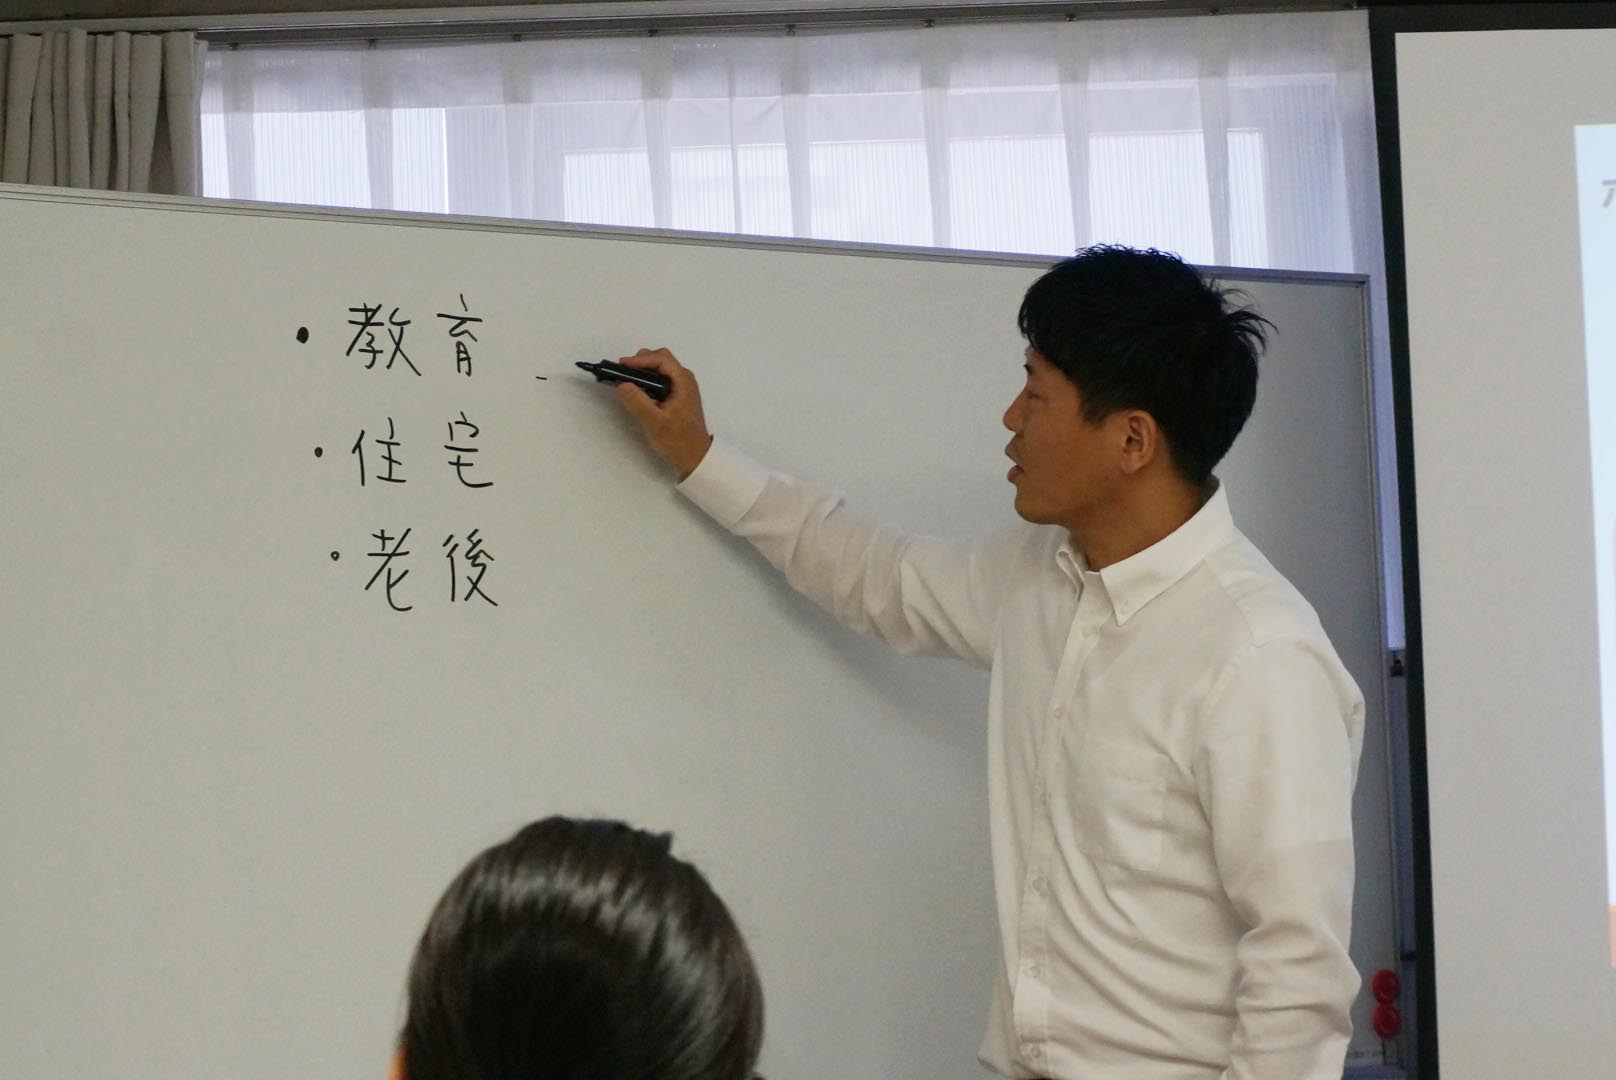 ・教育
・住宅
・老後